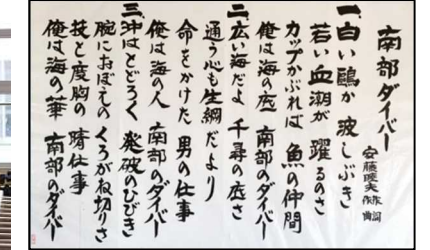 南部ダイバー
安藤睦夫 作詞
作曲
一、白い鴎か 波しぶき
若い血潮が 躍るのさ
カップかぶれば 魚の仲間
俺は海の底 南部のダイバー
二、広い海だよ 千尋の底さ
通う心も 生綱だより
命をかけた 男の仕事
俺は海の人 南部のダイバー
三、沖はとどろく 発破のひびき
腕におぼえの くろがね切りさ
技と度胸の 晴仕事
俺は海の華 南部のダイバー